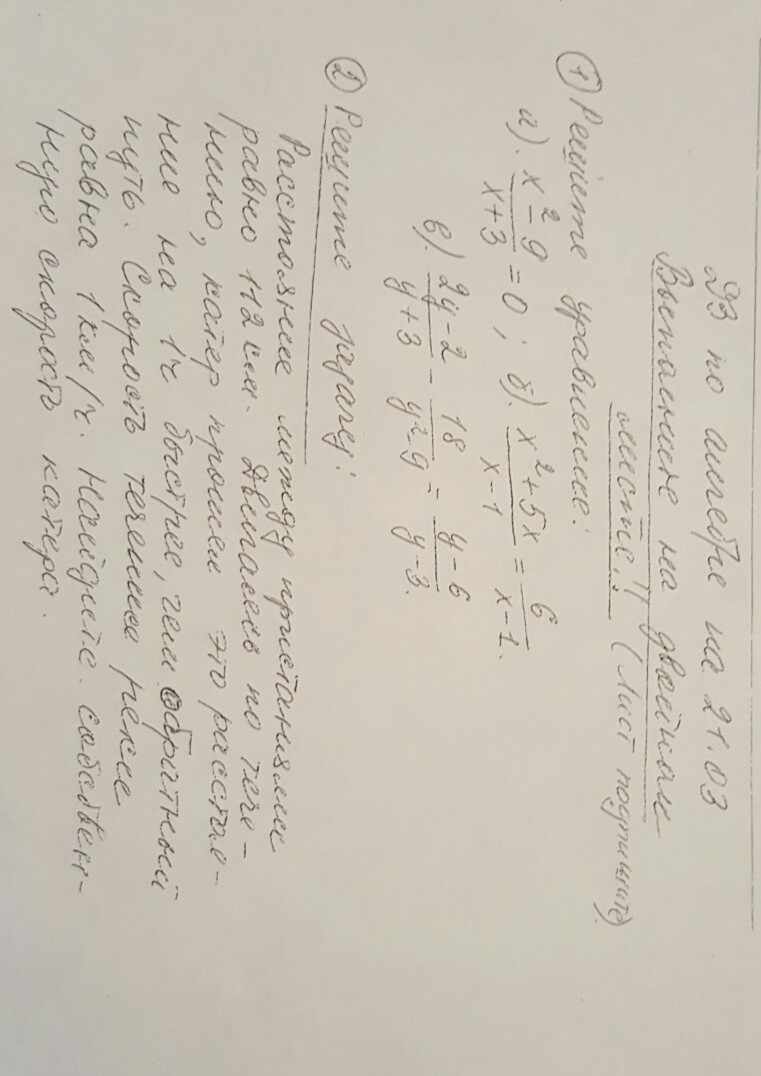 ДЗ по алгебре на 21.03
Выполните на двойном
листе!! (Лист подпишите).
① Решите уравнение:
а). x²-9/x+3 = 0; б). x²+5x/x-1 = 6/x-1.
в). 2y-2/y+3 - 18/y²-9 = y-6/y-3.
② Решите задачу:
Расстояние между пристанями
равно 112 км. Двигаясь по тече-
нию, катер прошел это расстоя-
ние на 1ч быстрее, чем обратный
путь. Скорость течения реки
равна 1 км/ч. Найдите собствен-
ную скорость катера.